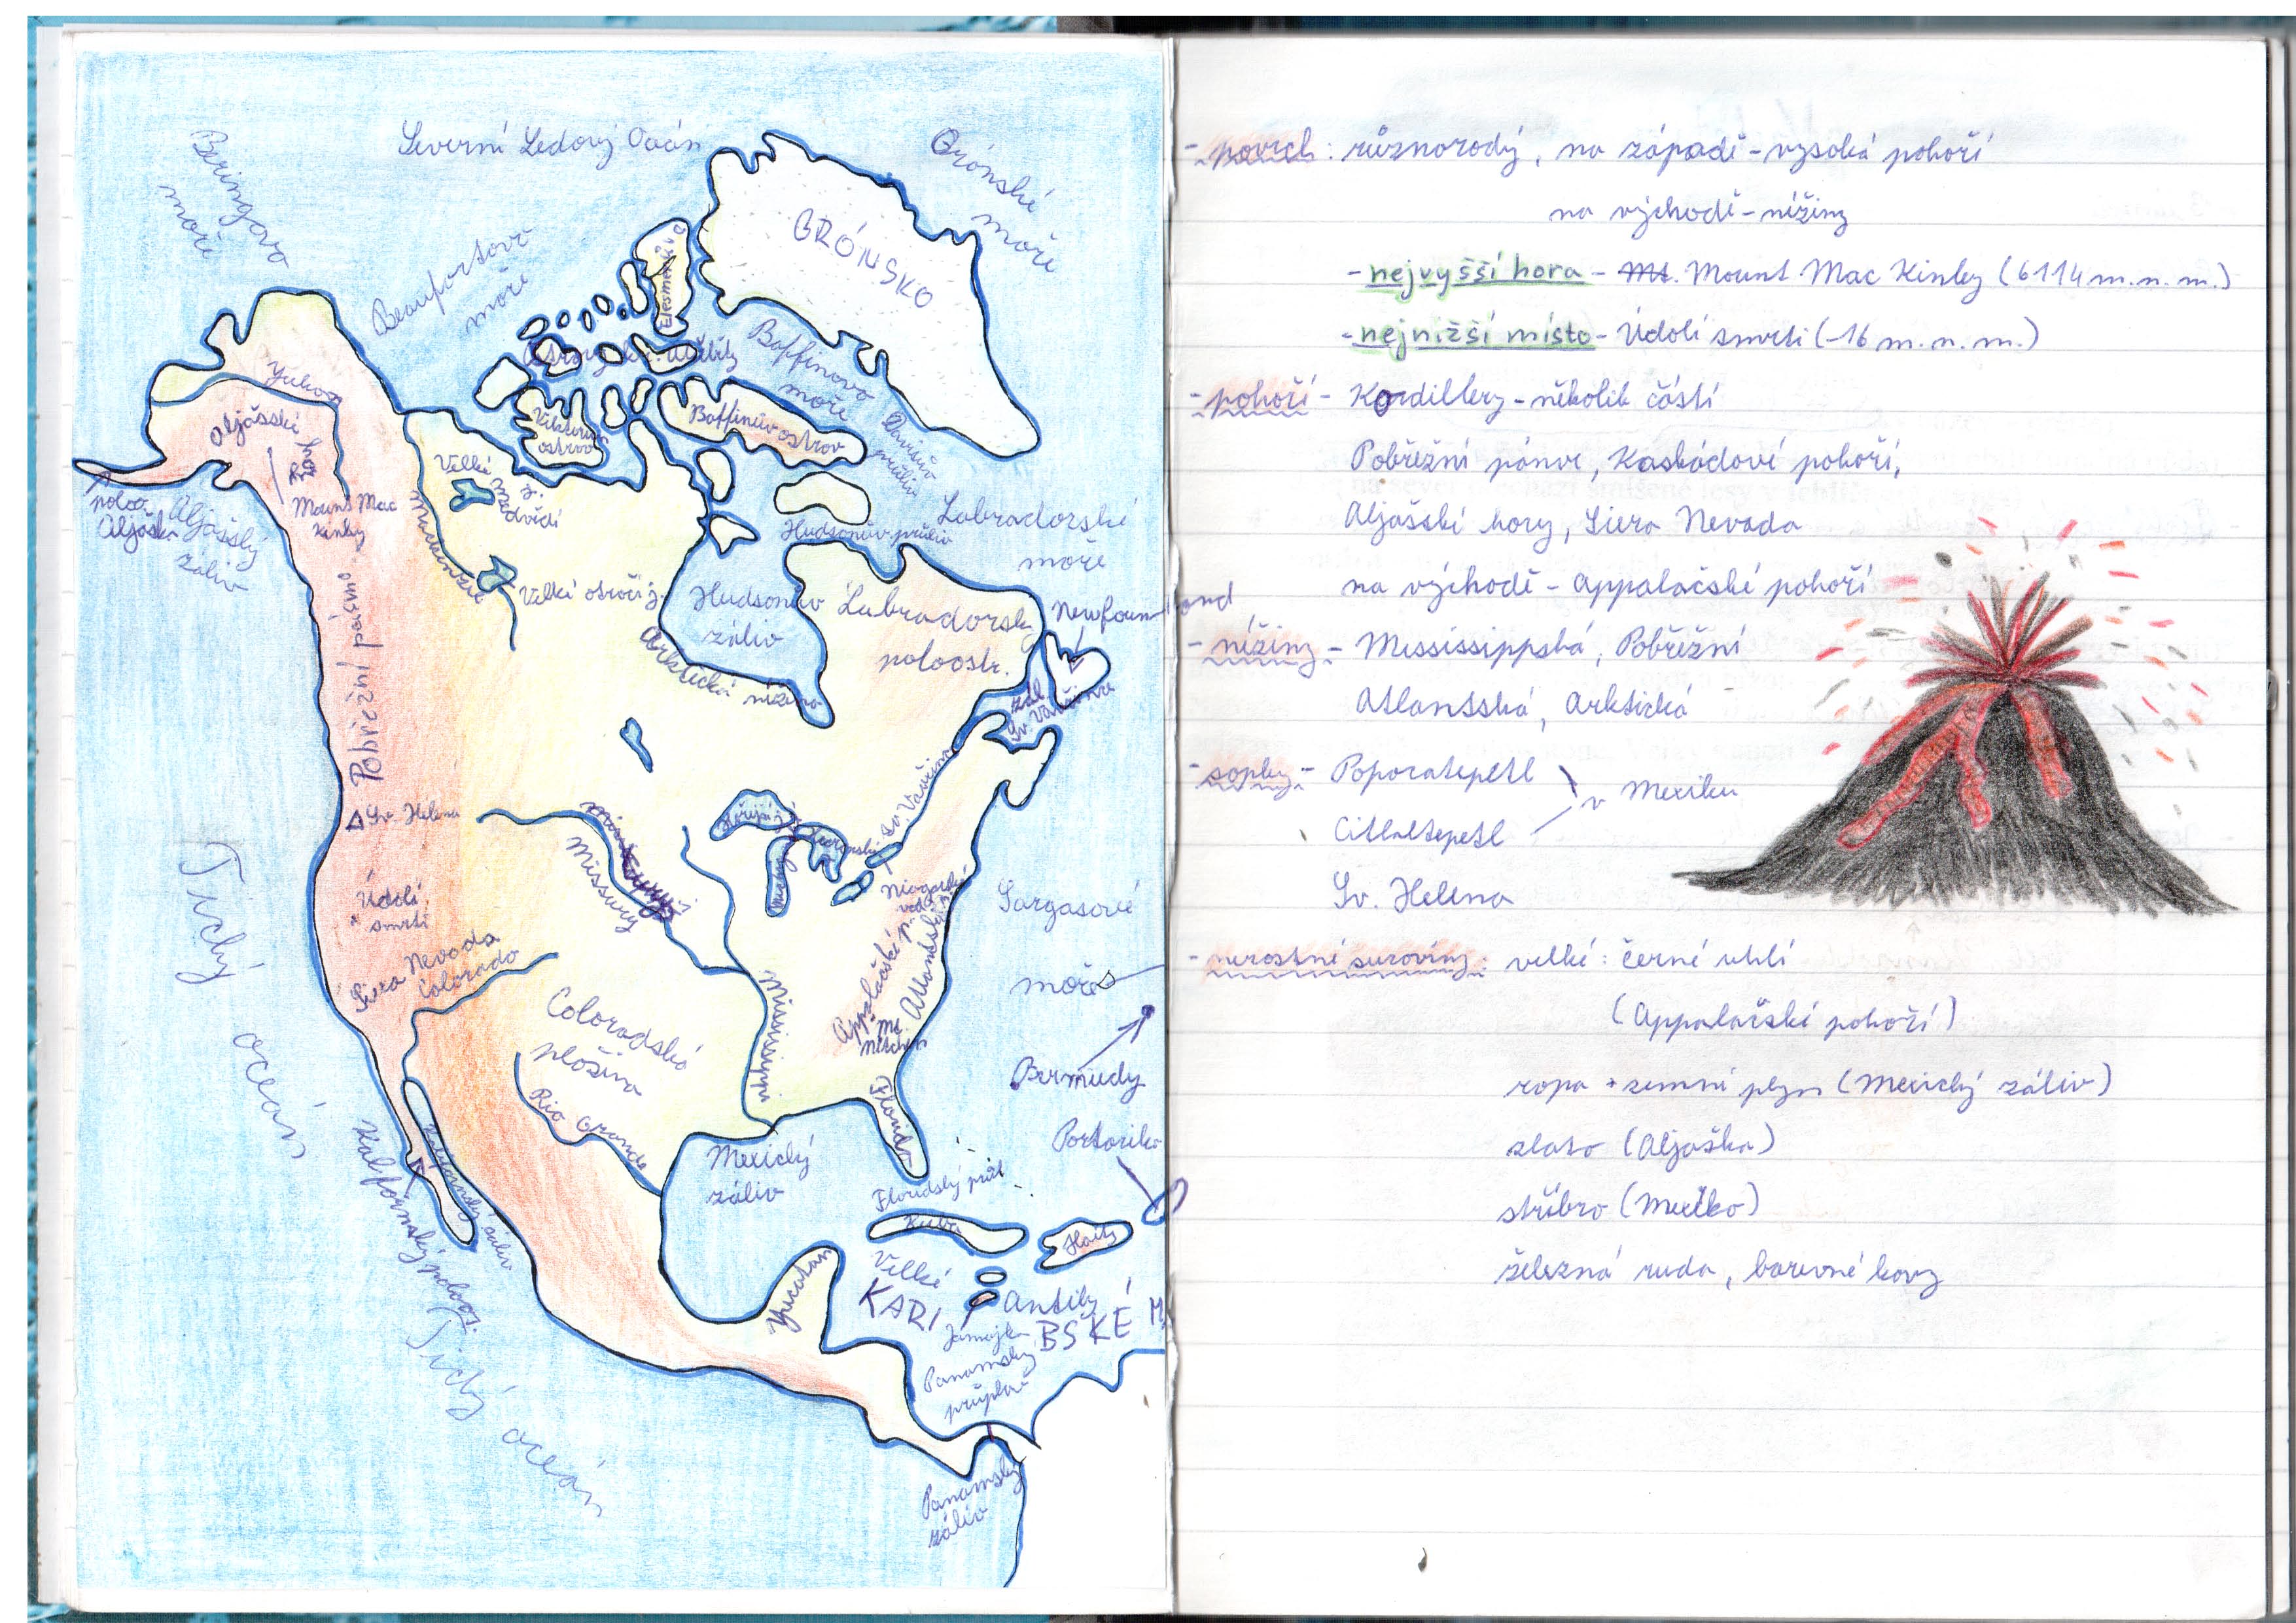 Severní Ledový Oceán
Grónské
moře
Beringovo
moře
Beaufortovo
moře
GRÓNSKO
Baffinovo
moře
Baffinův ostrov
Davisův
průliv
Yukon
Aljašské
hory
Mount Mac
Kinley
poloo.
Aljaška
Aljašský
záliv
Velké
Medvědí
j.
Viktoriin
ostrov
Mackenzie
Velké otročí j.
Labradorské
moře
Hudsonův průliv
Hudsonův
záliv
Labradorský
poloostr.
Newfoundland
zál.
Sv. Vavřince
Arktická nížina
Pobřežní pásmo
Sv. Helena
Missoury
Hořejší j.
Sv. Vavřinec
Niagarské
vod.
Údolí
smrti
Siera Nevada
Colorado
Coloradská
plošina
Mississippi
Appalačské p.
Atlantská
Mt.
Sargasové
moře
Bermudy
Rio Grande
Florida
Mexický
záliv
Portoriko
Floridský průl.
Kuba
Haity
Kalifornský záliv
Kalifornský poloos.
Yucatan
Velké
Antily
KARI
BSKÉ M
Jamajka
Panamský
průplav
Panamský
záliv
Tichý
oceán
Tichý
oceán
- povrch: různorodý, na západě - vysoká pohoří
na východě - nížiny
- nejvyšší hora - Mt. Mount Mac Kinley (6114 m.n.m.)
- nejnižší místo - Údolí smrti (-16 m.n.m.)
- pohoří - Kordillery - několik částí
Pobřežní pánve, Kaskádové pohoří,
Aljašské hory, Siera Nevada
na východě - Appalačské pohoří
- nížiny - Mississippská, Pobřežní
Atlantská, Arktická
- sopky - Poporatepetl
v Mexiku
Citlaltepetl
Sv. Helena
- nerostné suroviny: velké: černé uhlí
(Appalačské pohoří)
ropa + zemní plyn (Mexický záliv)
zlato (Aljaška)
stříbro (Mexiko)
železná ruda, barevné kovy